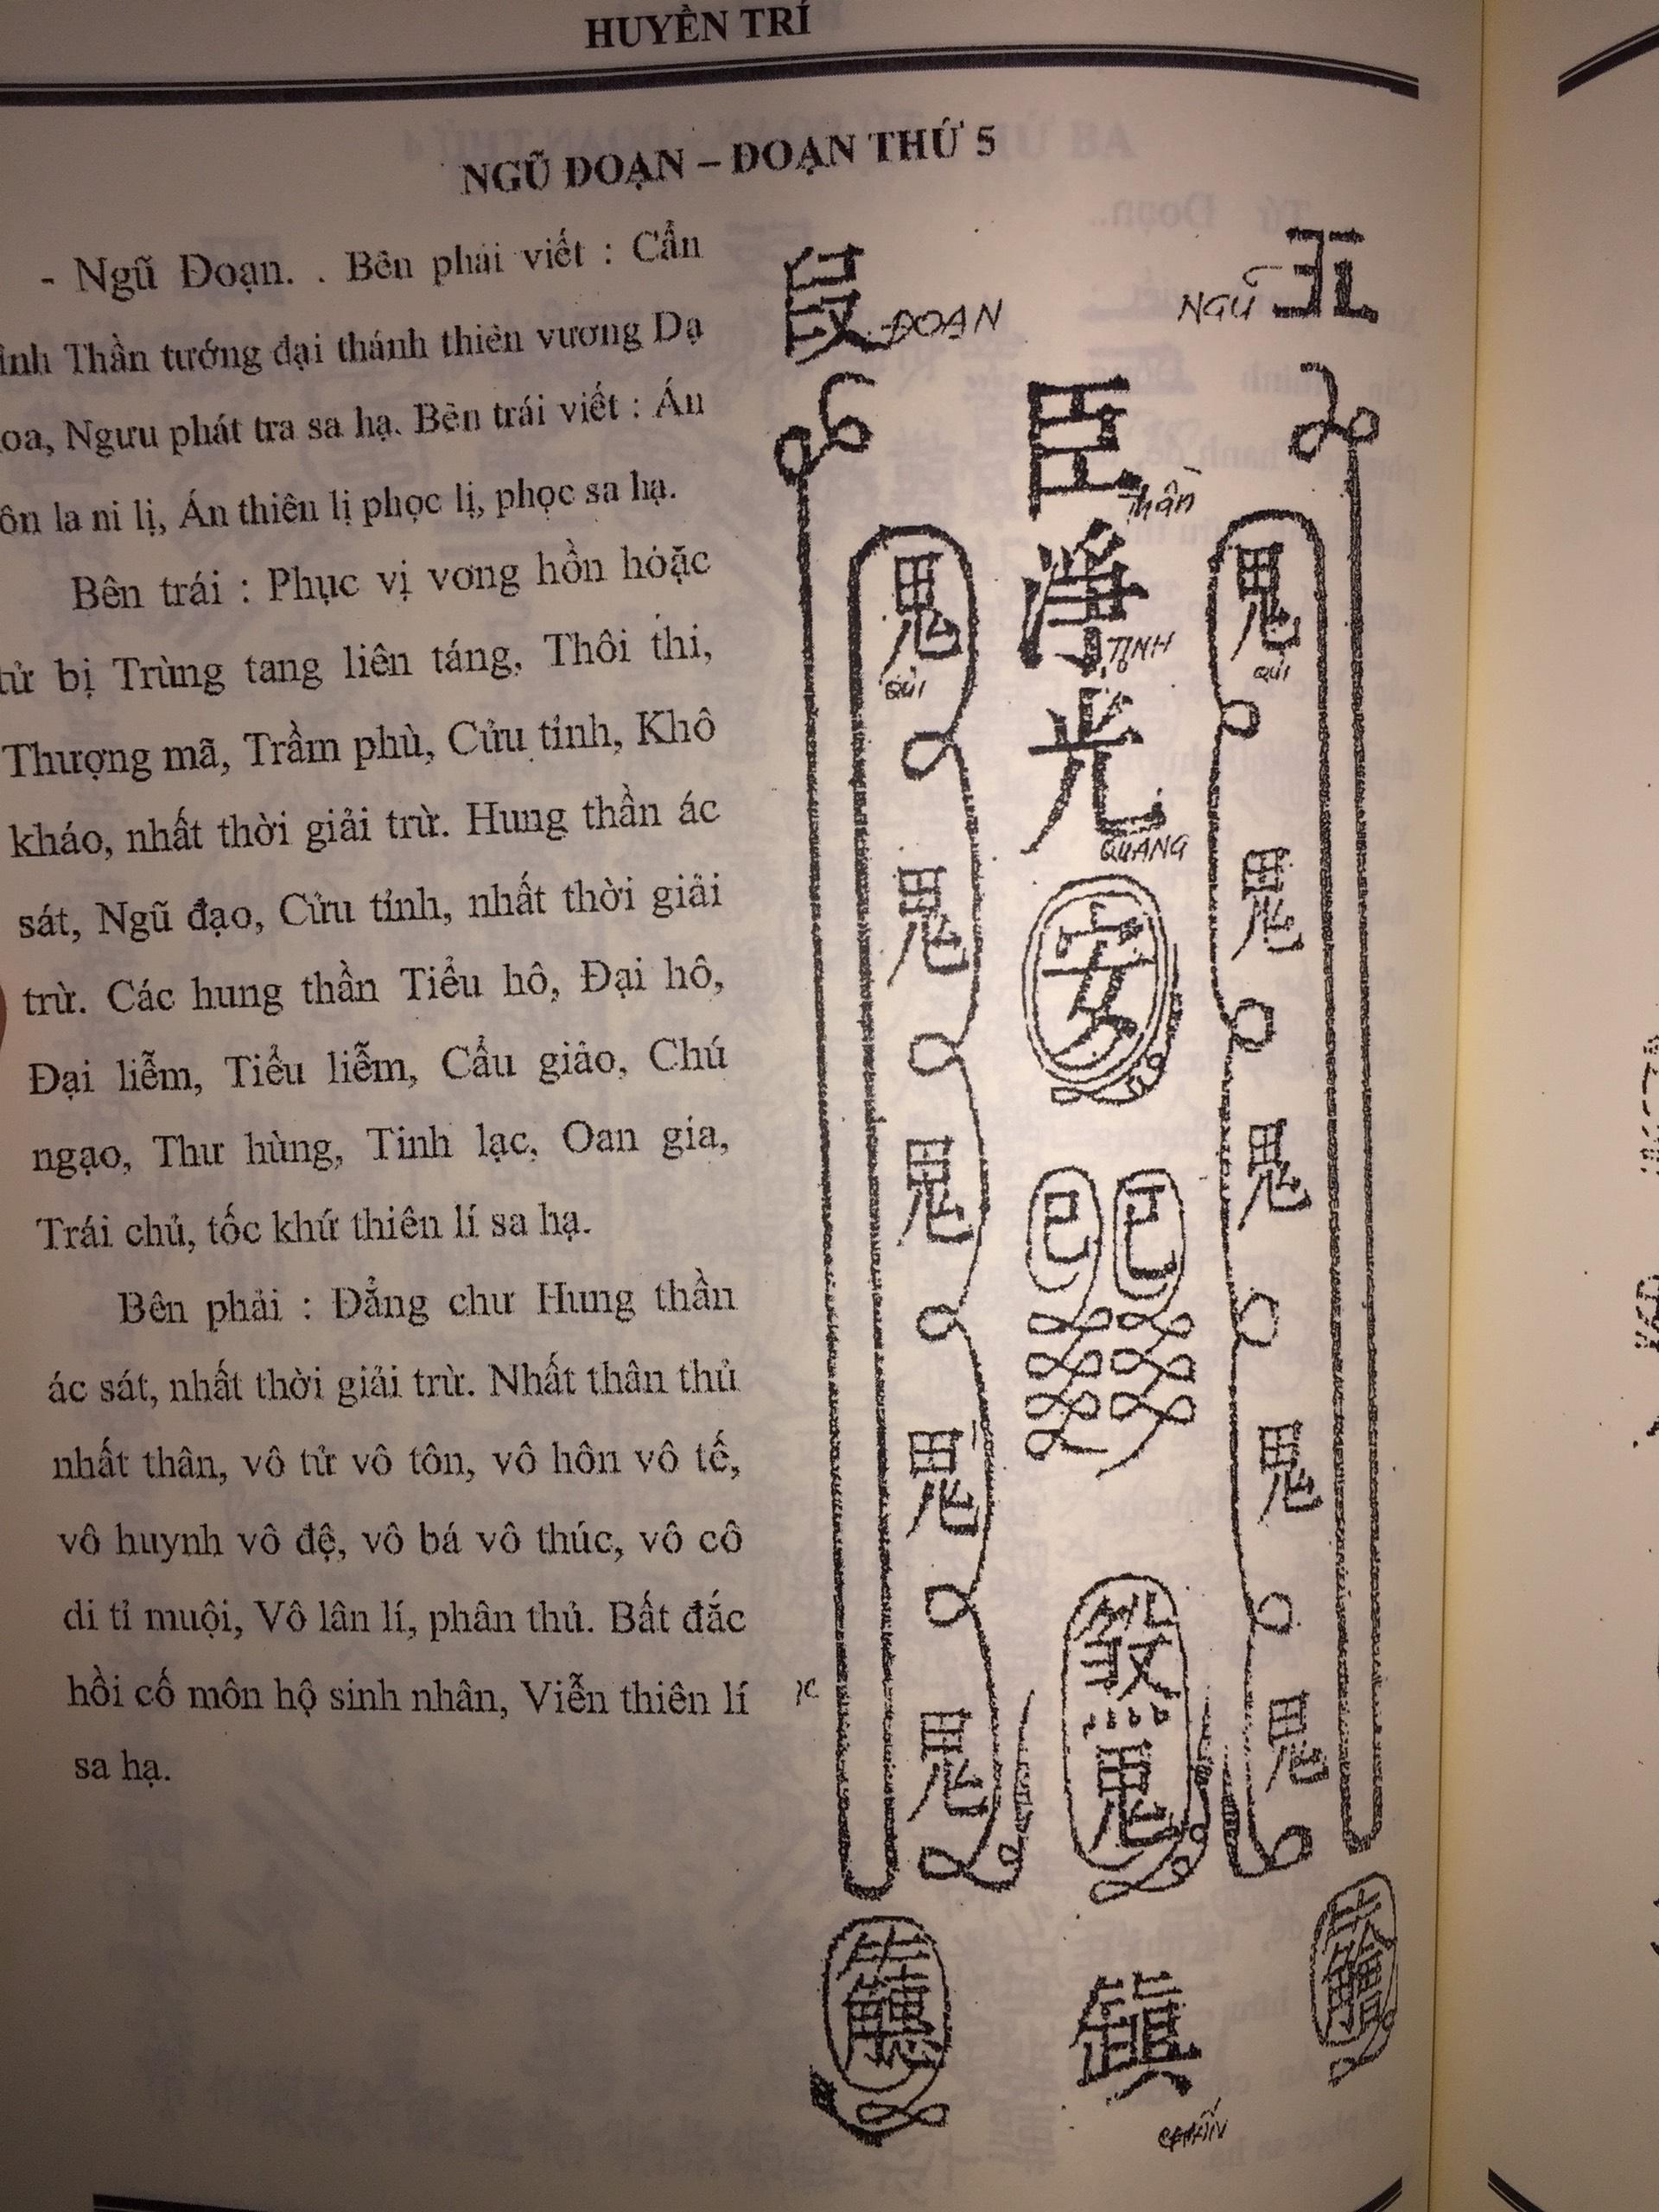 HUYỀN TRÍ
NGŨ ĐOẠN – ĐOẠN THỨ 5
- Ngũ Đoạn. . Bên phải viết : Cẩn
ỉnh Thần tướng đại thánh thiên vương Dạ
oa, Ngưu phát tra sa hạ. Bên trái viết : Án
ôn la ni lị, Án thiên lị phọc lị, phọc sa hạ.
Bên trái : Phục vị vong hồn hoặc
tử bị Trùng tang liên táng, Thôi thi,
Thượng mã, Trầm phù, Cửu tỉnh, Khô
kháo, nhất thời giải trừ. Hung thần ác
sát, Ngũ đạo, Cửu tỉnh, nhất thời giải
trừ. Các hung thần Tiểu hô, Đại hô,
Đại liễm, Tiểu liễm, Cẩu giảo, Chú
ngạo, Thư hùng, Tinh lạc, Oan gia,
Trái chủ, tốc khứ thiên lí sa hạ.
Bên phải : Đẳng chư Hung thần
ác sát, nhất thời giải trừ. Nhất thân thủ
nhất thân, vô tử vô tôn, vô hôn vô tế,
vô huynh vô đệ, vô bá vô thúc, vô cô
di tỉ muội, Vô lân lí, phân thủ. Bất đắc
hồi cố môn hộ sinh nhân, Viễn thiên lí
sa hạ.
五 NGŨ
段 ĐOẠN
臣 Thần
淨 TỊNH
光 QUANG
安
鬼 QỦI
鬼
鬼
鬼
鬼
鬼 QỦI
鬼
鬼
鬼
鬼
鬼
鎮
CHẤN